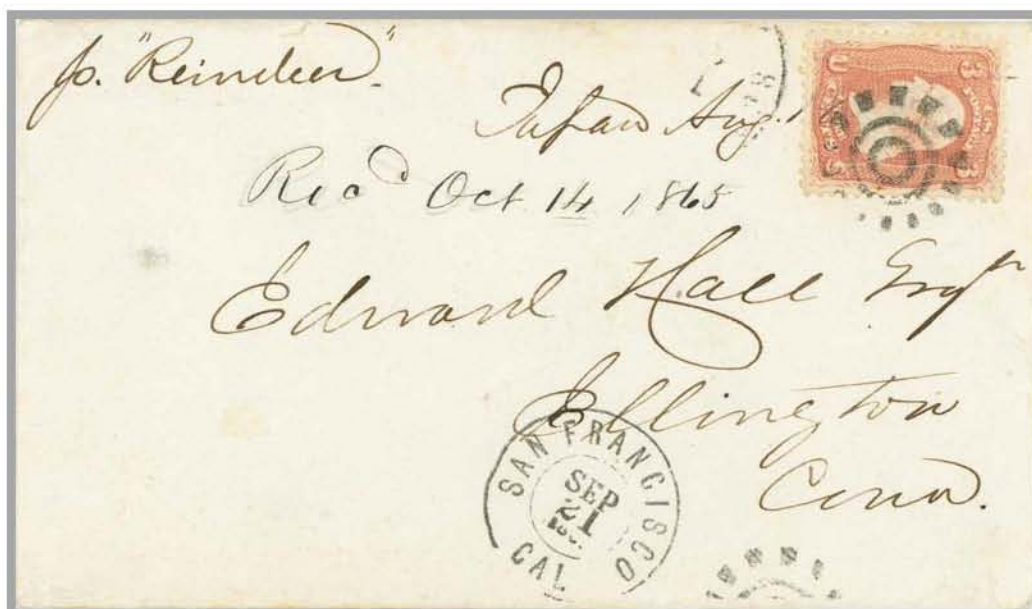 p. "Reindeer"
Japan Aug. 1
Rec'd Oct 14 1865
Edward Hall Esqr
Ellington
Conn.
SAN FRANCISCO
SEP
21
CAL
3 3
U S